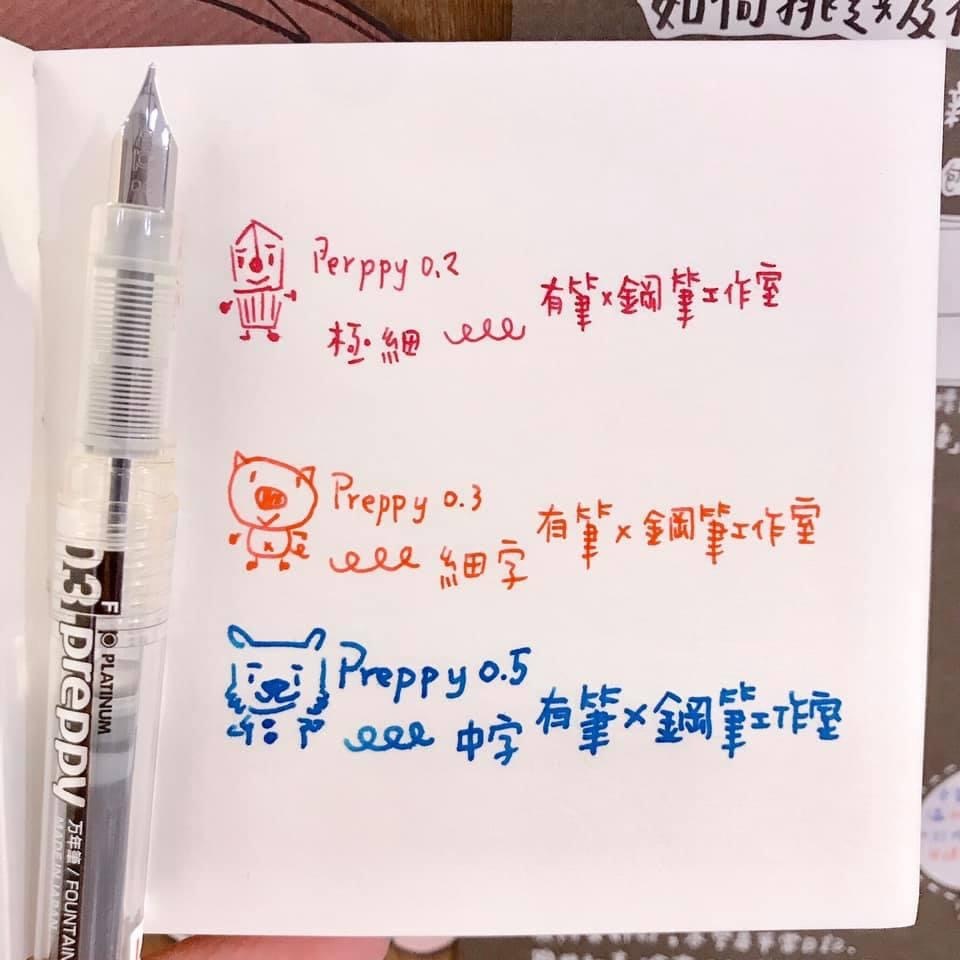 如何挑
Perppy 0.2
極細
有筆×鋼筆工作室
Preppy 0.3
細字
有筆×鋼筆工作室
Preppy 0.5
中字
有筆×鋼筆工作室
03 F PLATINUM
preppy
万年筆 / FOUNTAIN
MADE IN JAPAN